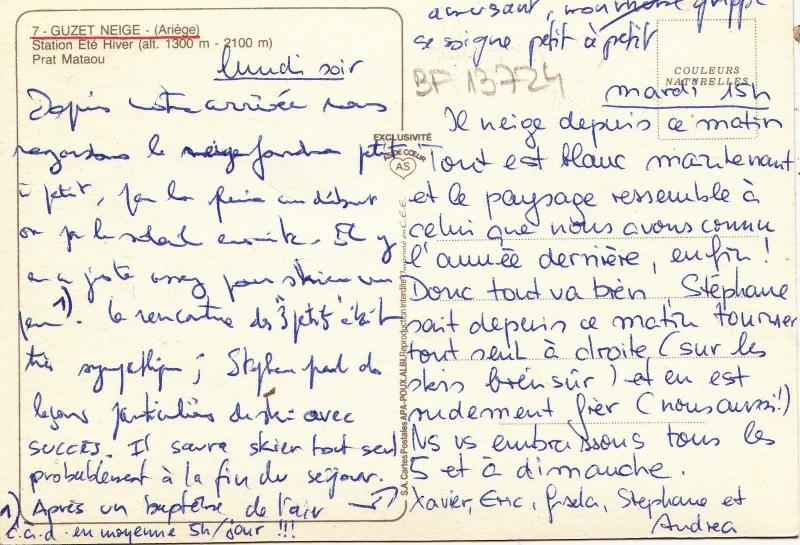 7 - GUZET NEIGE - (Ariège)
Station Eté Hiver (alt. 1300 m - 2100 m)
Prat Mataou
lundi soir
Depuis notre arrivée nous
regardons la neige fondre petit
à petit, par la pluie au début
ou par le soleil ensuite. Il y
en a juste assez pour skier un
peu 1). La rencontre des "3 petits" était
très sympathique ; Stéphane prend des
leçons particulières de ski avec
SUCCÈS. Il saura skier tout seul
probablement à la fin du séjour.
Après un baptême de l'air →
1) c.à.d. en moyenne 5h/jour !!!
EXCLUSIVITÉ
AS DE CŒUR
AS
S.A. Cartes Postales APA-POUX, ALBI. Reproduction interdite. Imprimé en C.E.E.
amusant, grippe
se soigne petit à petit
BF 13724
COULEURS
NATURELLES
mardi 15h
Il neige depuis ce matin
Tout est blanc maintenant
et le paysage ressemble à
celui que nous avons connu
l'année dernière, enfin !
Donc tout va bien, Stéphane
sait depuis ce matin tourner
tout seul à droite (sur les
skis bien sûr) et en est
rudement fier (nous aussi!)
Ns vs embrassons tous les
5 et à dimanche.
Xavier, Eric, Gisela, Stephane et
Andrea